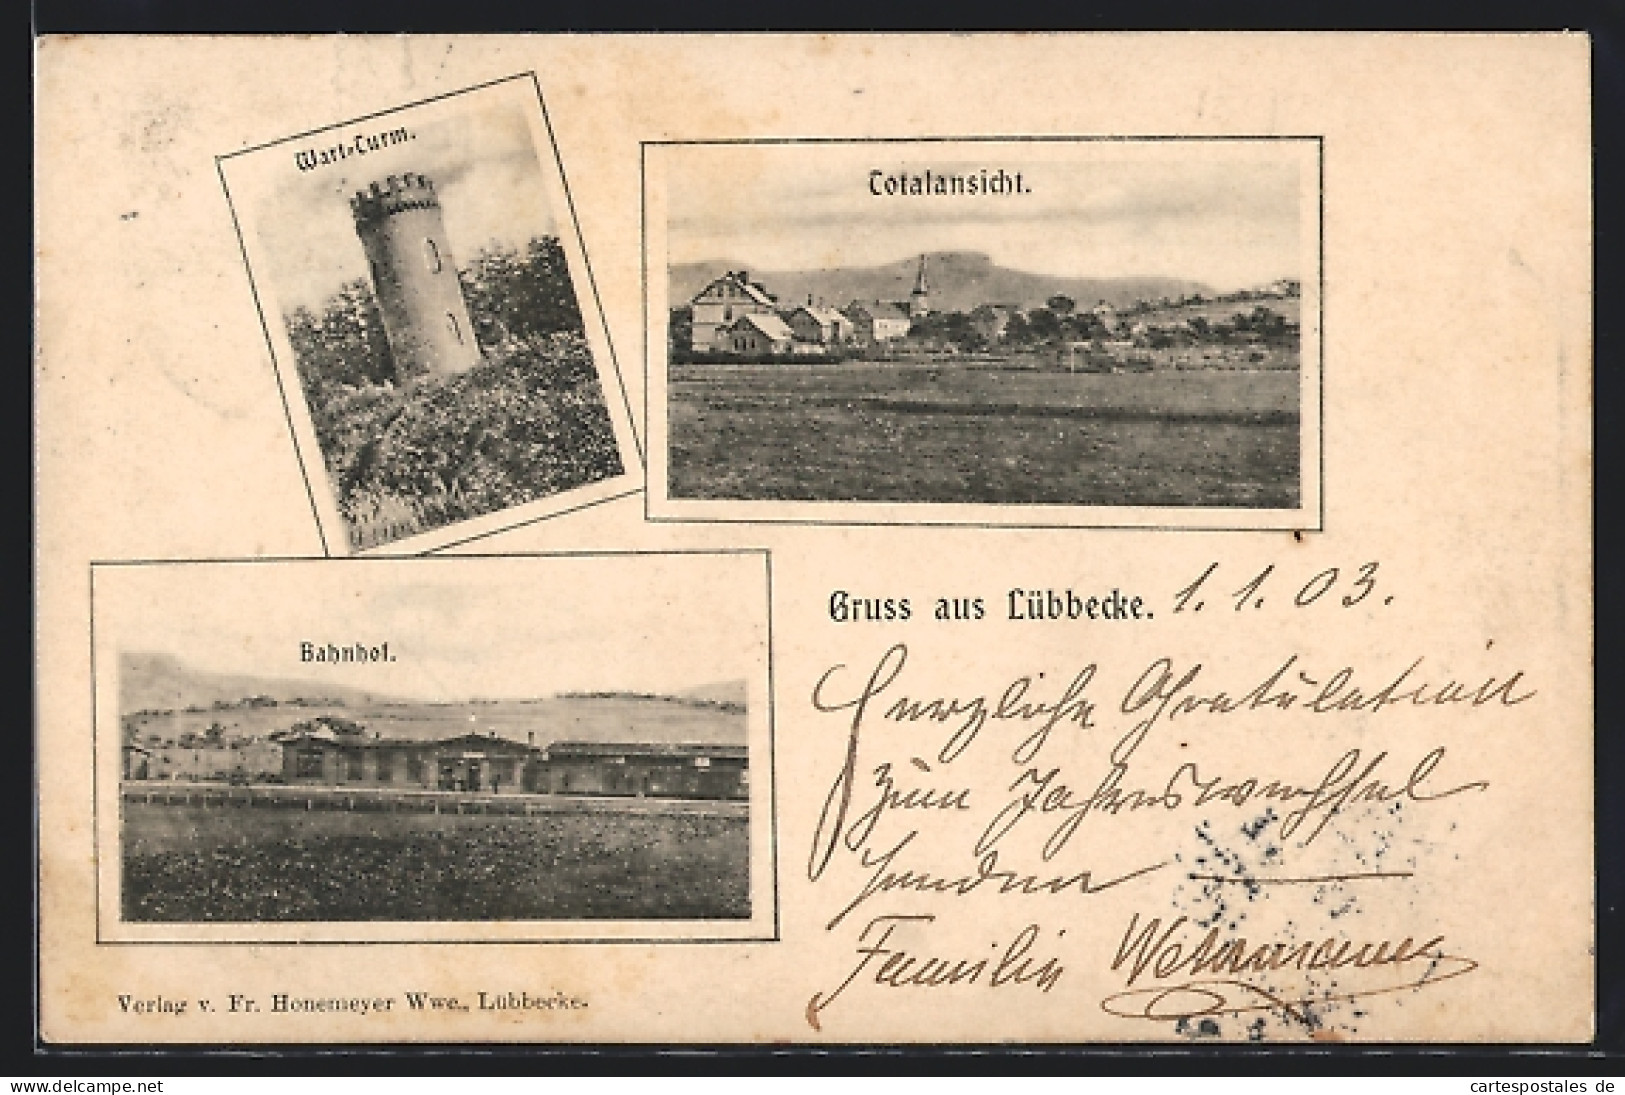 Wart-Turm.
Totalansicht.
Bahnhof.
Gruss aus Lübbecke. 1. 1. 03.
Herzliche Gratulation
zum Jahreswechsel
senden
Familie
Verlag v. Fr. Honemeyer Wwe., Lübbecke.
delcampe.net
cartespostales de